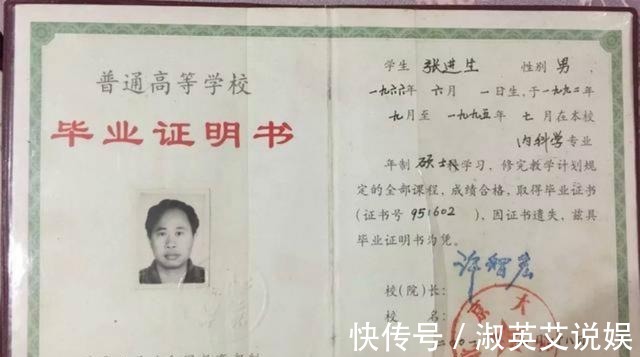 普通高等学校
毕业证明书
学生 张进生 性别 男,
一九六六年 六月 一日生,于一九九二年
九月至 一九九五年 七月在本校
内科学专业
年制 硕士科学习,修完教学计划规
定的全部课程,成绩合格,取得毕业证书
(证书号 951602 ),因证书遗失,兹具
毕业证明书为凭。
校(院)长:
校 名:
快传号/淑英艾说娱